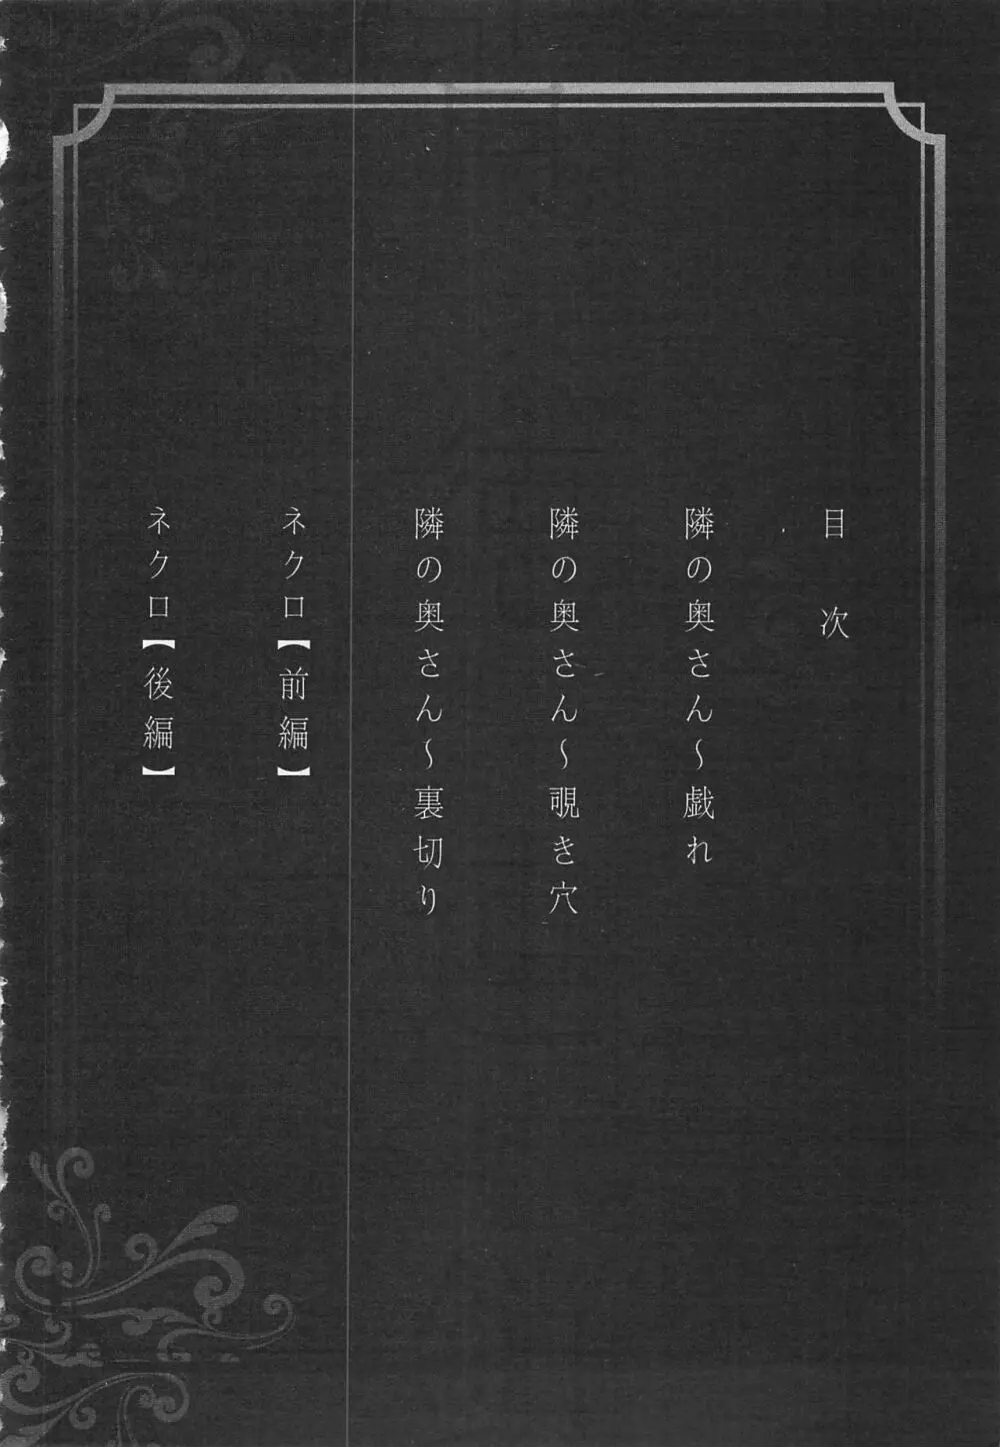 目次
隣の奥さん～戯れ
隣の奥さん～覗き穴
隣の奥さん～裏切り
ネクロ【前編】
ネクロ【後編】